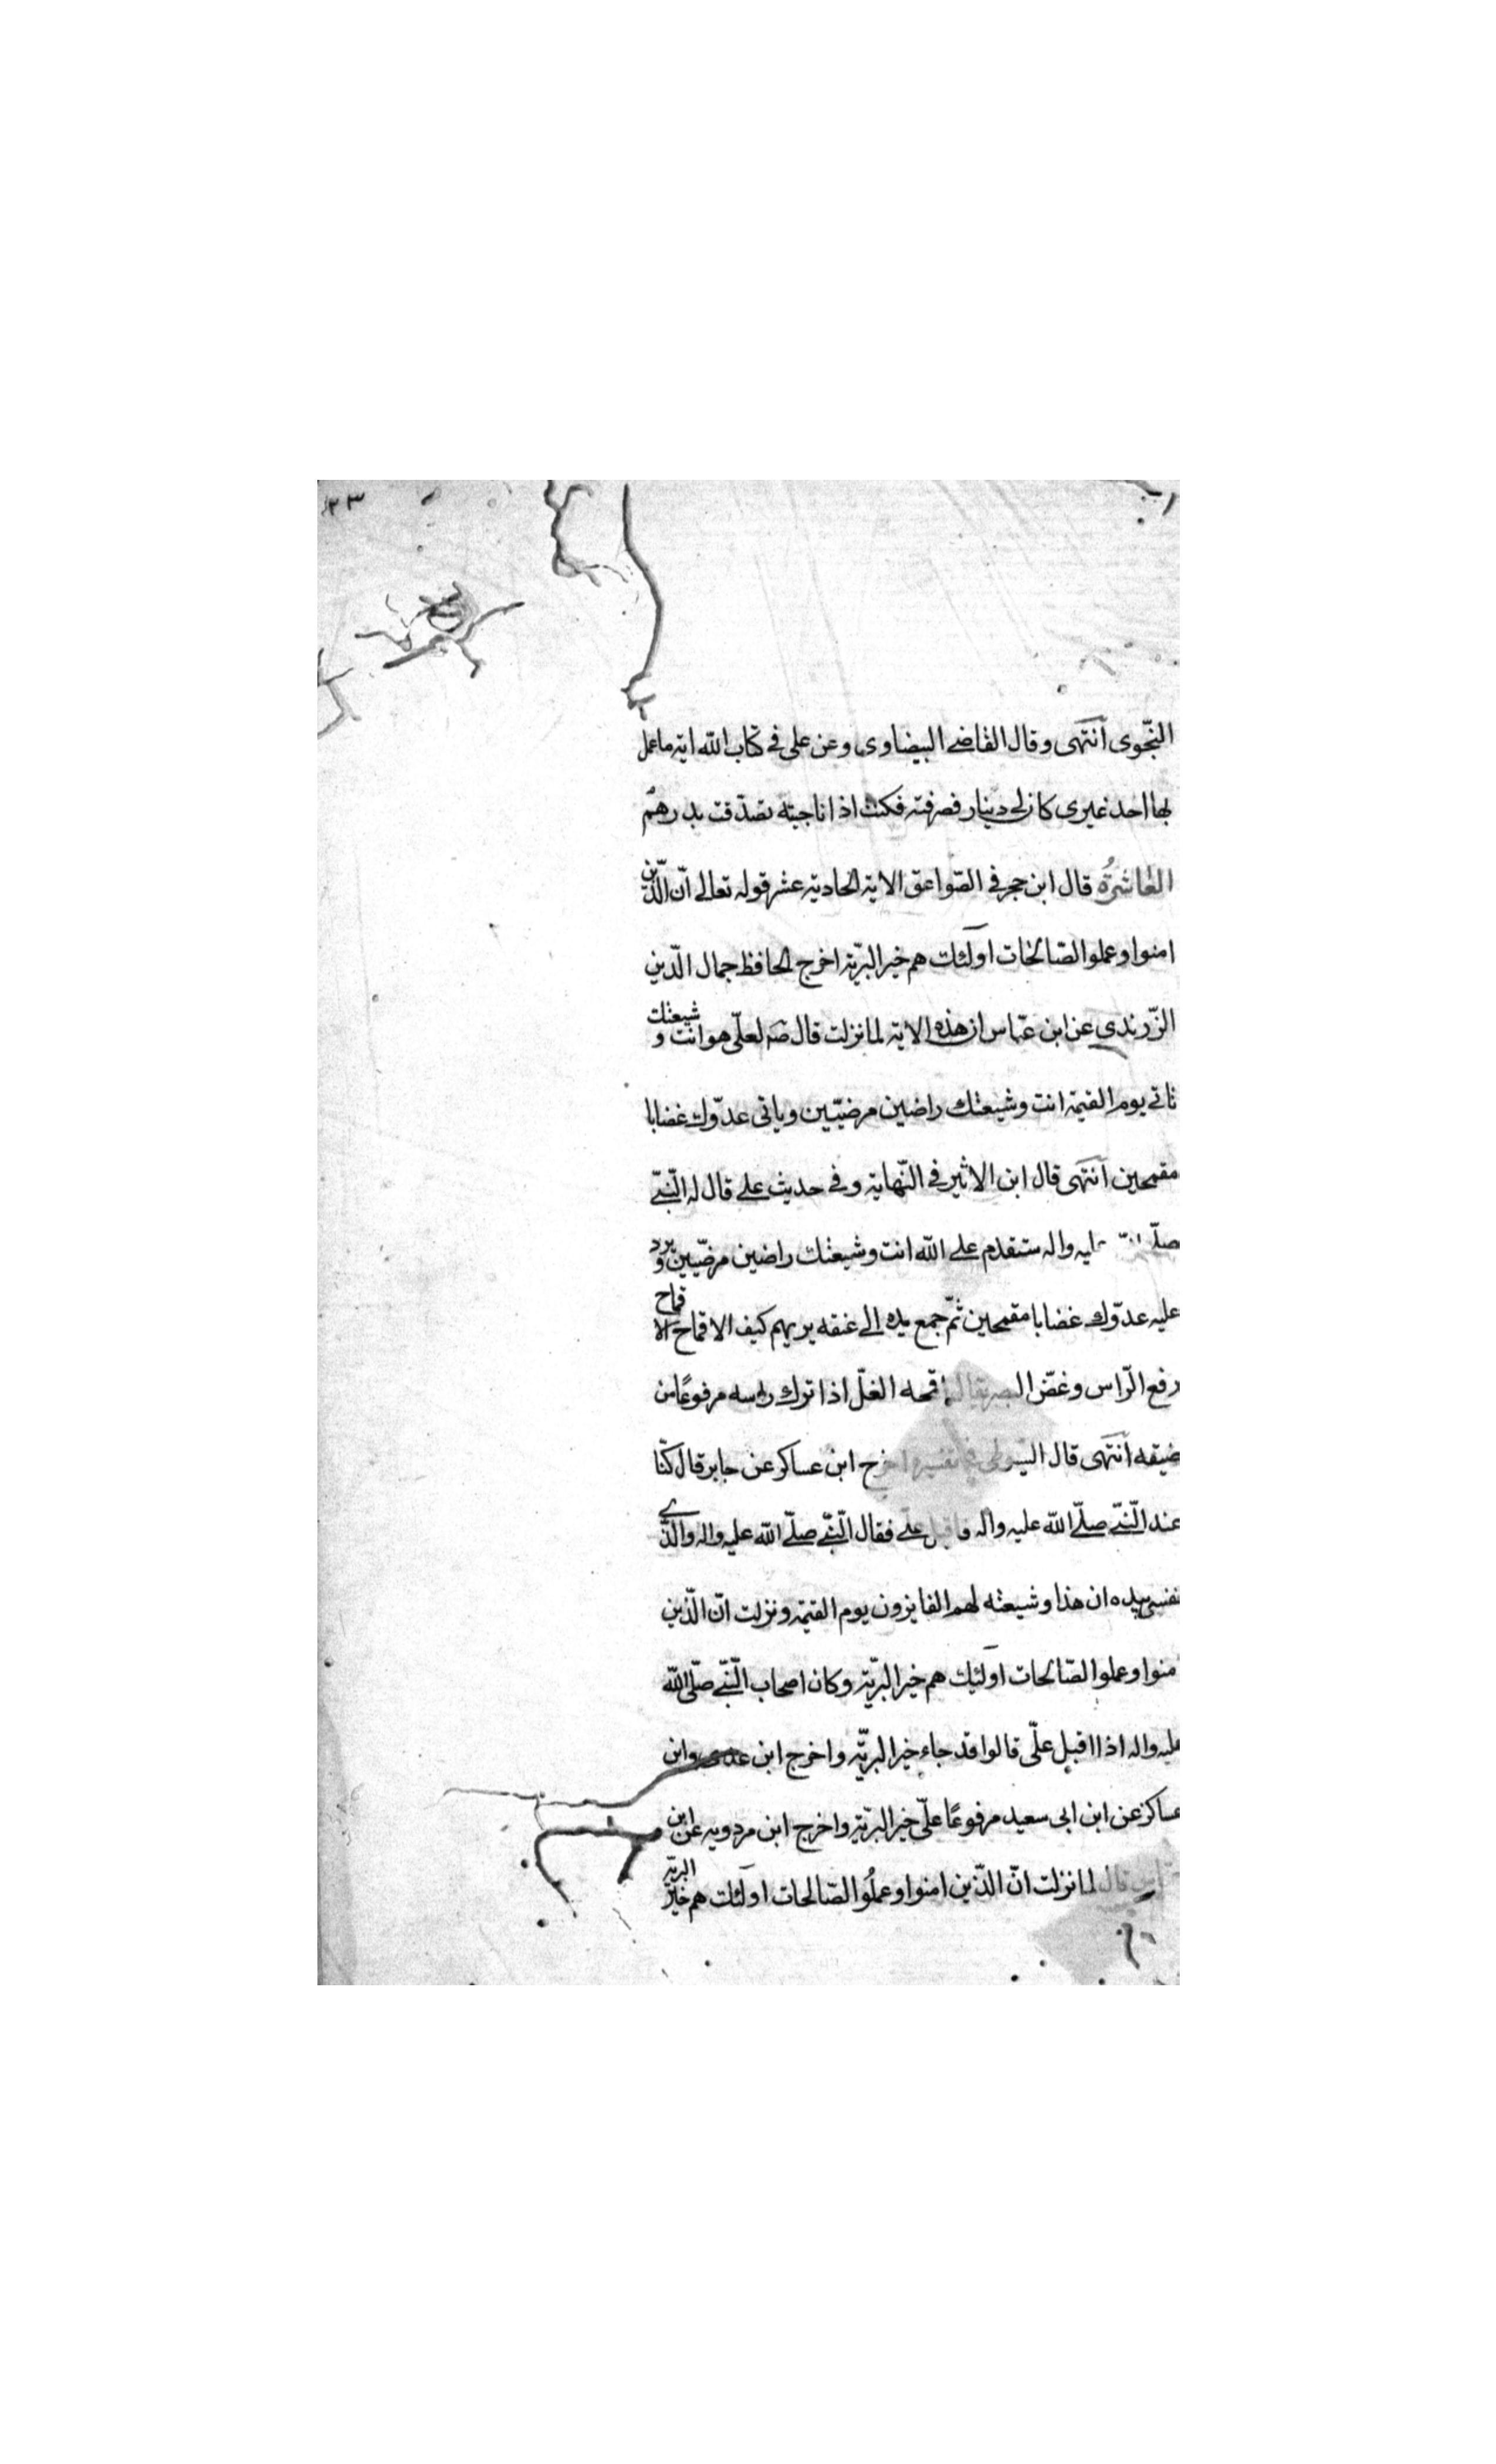 ٢٣
النّجوى انتهى وقال القاضى البيضاوى وعن على فى كتاب الله اية ما عمل
بها احد غيرى كان لى دينار فصرفته فكنت اذا ناجيته تصدّقت بدرهم
العاشرةُ قال ابن حجر فى الصّواعق الاية الحادية عشر قوله تعالى انّ الّذين
امنوا وعملوا الصّالحات اولئك هم خير البريّة اخرج الحافظ جمال الدّين
الزّرندى عن ابن عبّاس ان هذه الاية لما نزلت قال صم لعلّى هو انت وشيعتك
تاتى يوم القيمة انت وشيعتك راضين مرضيّين وياتى عدوّك غضابا
مقمحين انتهى قال ابن الاثير فى النّهاية وفى حديث على قال له النّبىّ
صلّى عليه واله ستقدم على الله انت وشيعتك راضين مرضيّين ويرد
عليه عدوّك غضابا مقمحين ثمّ جمع يده الى عنقه يريهم كيف الاقماح الاقماح
رفع الرّاس وغضّ البصر يقال اقمحه الغلّ اذا ترك راسه مرفوعًا من
ضيقه انتهى قال السّيوطى فى تفسيره اخرج ابن عساكر عن جابر قال كنّا
عند النّبىّ صلّى الله عليه واله فاقبل علّى فقال النّبىّ صلّى الله عليه واله والّذى
نفسى بيده ان هذا وشيعته لهم الفايزون يوم القيمة ونزلت انّ الّذين
امنوا وعملوا الصّالحات اولئك هم خير البريّة وكان اصحاب النّبىّ صلّى الله
عليه واله اذا اقبل علّى قالوا قد جاء خير البريّة واخرج ابن عدى وابن
عساكر عن ابن ابى سعيد مرفوعًا علّى خير البريّة واخرج ابن مردويه عن ابن
عبّاس قال لما نزلت انّ الّذين امنوا وعملُوا الصّالحات اولئك هم خير البريّة